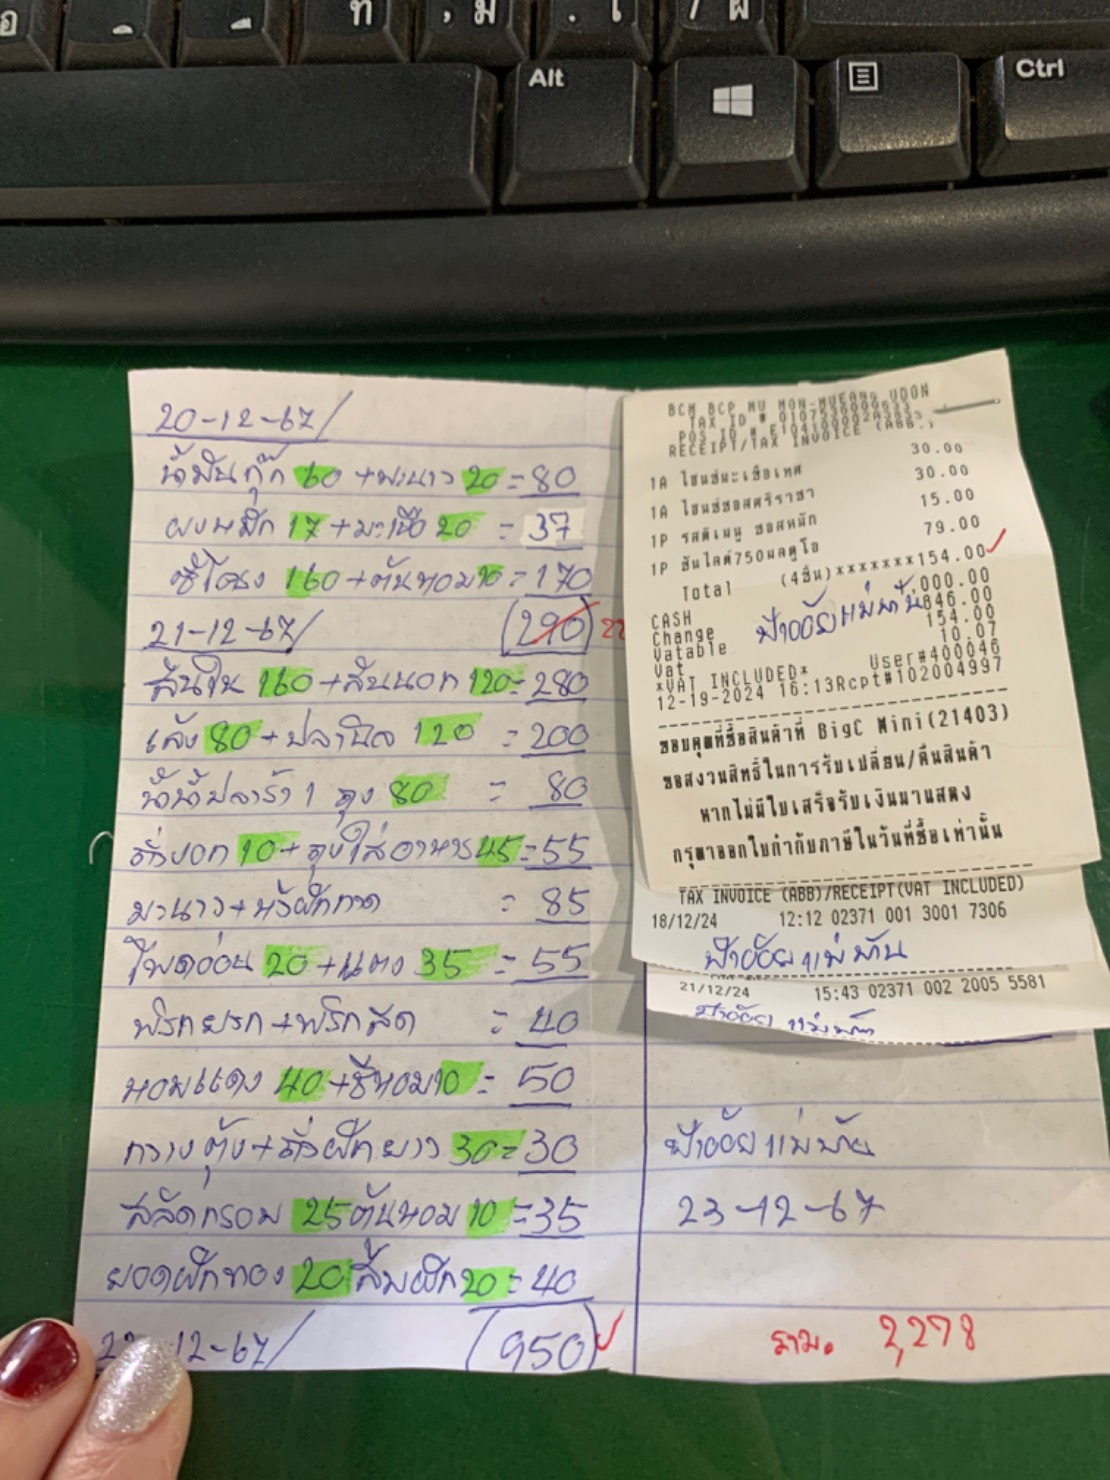 Alt
Ctrl
20-12-67/
น้ำมันกุ๊ก 60 + มะนาว 20 = 80
ผงหมึก 17 + มะเขือ 20 = 37
ซี่โครง 160 + ต้นหอม 10 = 170
21-12-67/ (290)
สันใน 160 + สันนอก 120 = 280
เล้ง 80 + ปลานิล 120 = 200
น้ำปลาร้า 1 ถุง 80 = 80
ถั่วงอก 10 + ถุงใส่อาหาร 45 = 55
มะนาว + = 85
โพดอ่อน 20 + แตง 35 = 55
พริกหยวก + พริกสด = 40
หอมแดง 40 + ชีหอม 10 = 50
กวางตุ้ง + ถั่วฝักยาว 30 = 30
สลัดกรอบ 25 ต้นหอม 10 = 35
ยอดฟักทอง 20 ส้มผัก 20 = 40
-12-67/ (950)
BCM BCP MU MON-MUEANG UDON
RECEIPT/TAX INVOICE (ABB.)
1A ไฮนซ์มะเขือเทศ 30.00
1A ไฮนซ์ซอสศรีราชา 30.00
1P รสดีเมนู ซอสหมัก 15.00
1P ซันไลต์750มลตูโอ 79.00
Total (4ชิ้น)*******154.00
CASH 000.00
Change 846.00
Vatable 154.00
Vat 10.07
*VAT INCLUDED* User#400046
12-19-2024 16:13Rcpt#102004997
ป้าอ้อยแม่บ้าน
ขอบคุณที่ซื้อสินค้าที่ BigC Mini(21403)
ขอสงวนสิทธิ์ในการรับเปลี่ยน/คืนสินค้า
หากไม่มีใบเสร็จรับเงินมาแสดง
กรุณาออกใบกำกับภาษีในวันที่ซื้อเท่านั้น
TAX INVOICE (ABB)/RECEIPT(VAT INCLUDED)
18/12/24 12:12 02371 001 3001 7306
ป้าอ้อยแม่บ้าน
21/12/24 15:43 02371 002 2005 5581
ป้าอ้อย แม่บ้าน
ป้าอ้อยแม่บ้าน
23-12-67
รวม. 2,278